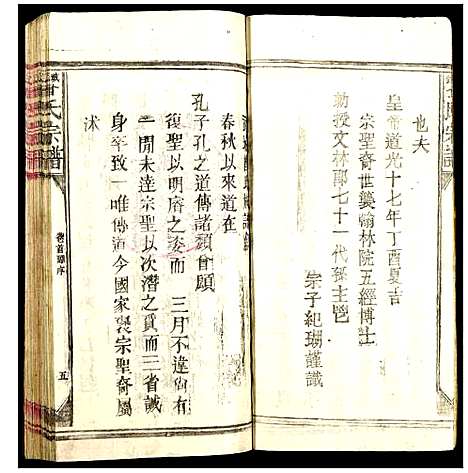 也夫
皇帝道光十七年丁酉夏吉
宗聖裔世襲翰林院五經博士
勅授文林郎七十一代奉主鬯
宗子紀瑚謹識
春秋以來道在
孔子孔之道傳諸顏曾顧
復聖以明睿之姿而三月不違尚有
一間未逹宗聖以次潛之質而三省誠
身卒致一唯傳道今國家褒宗聖裔屬
沭
氏宗譜
卷首 序
五